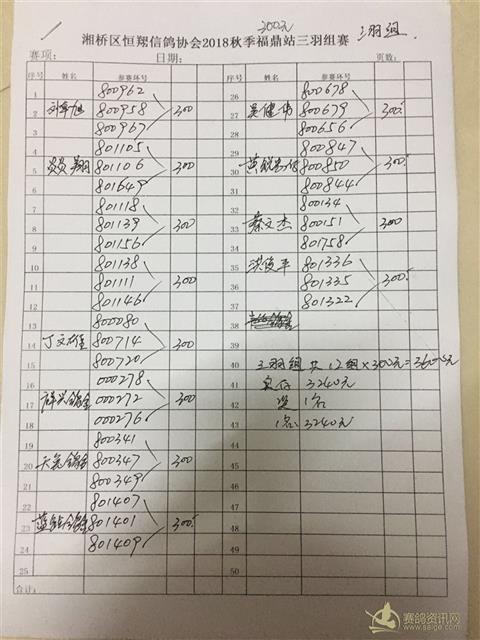 300元 三羽组
湘桥区恒翔信鸽协会2018秋季福鼎站三羽组赛
赛项: 日期: 页数:
序号 姓名 参赛环号 序号 姓名 参赛环号
1 800962 26 800678
2 800958 300 27 吴健伟 800679 300
3 800967 28 800656
4 801105 29 800847
5 801106 300 30 800850 300
6 801649 31 800844
7 801118 32 80134
8 801139 300 33 蔡文杰 800151 300
9 801156 34 801758
10 801138 35 洪俊平 801336
11 801111 300 36 801335 300
12 801146 37 801322
13 800080 38
14 丁文 800714 300 39
15 800720 40 三羽组 共12组×300元=3600元
16 000278 41 3240元
17 000272 300 42 1名
18 000276 43 1名:3240元
19 800341 44
20 800347 300 45
21 800349 46
22 801407 47
23 801401 300 48
24 801409 49
25 50
合计:
赛鸽资讯网
www.saige.com